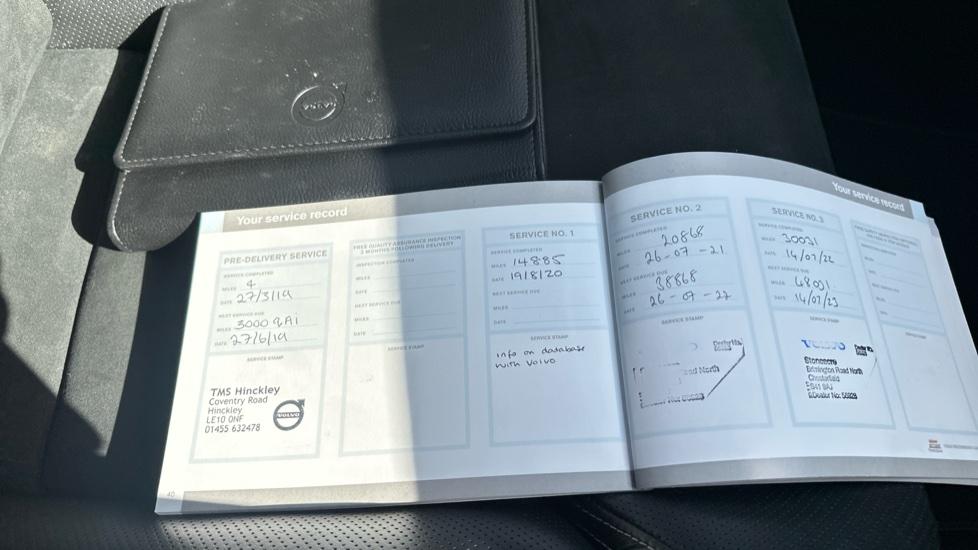 VOLVO
Your service record
PRE-DELIVERY SERVICE
SERVICE COMPLETED
MILES 4
DATE 27/3/19
NEXT SERVICE DUE
MILES 3000 QAi
DATE 27/6/19
SERVICE STAMP
TMS Hinckley
Coventry Road
Hinckley
LE10 0NF
01455 632478
VOLVO
40
FREE QUALITY ASSURANCE INSPECTION
3 MONTHS FOLLOWING DELIVERY
INSPECTION COMPLETED
MILES
DATE
NEXT SERVICE DUE
MILES
DATE
SERVICE STAMP
SERVICE NO. 1
SERVICE COMPLETED
MILES 14885
DATE 19/8/20
NEXT SERVICE DUE
MILES
DATE
SERVICE STAMP
info on database
with Volvo
Your service record
SERVICE NO. 2
SERVICE COMPLETED
MILES 20868
DATE 26-07-21
NEXT SERVICE DUE
MILES 38868
DATE 26-07-22
SERVICE STAMP
Road North
SERVICE NO. 3
SERVICE COMPLETED
MILES 30031
DATE 14/07/22
NEXT SERVICE DUE
MILES 48031
DATE 14/07/23
SERVICE STAMP
VOLVO
Stoneacre
Brimington Road North
Chesterfield
S41 9AJ
Dealer No: